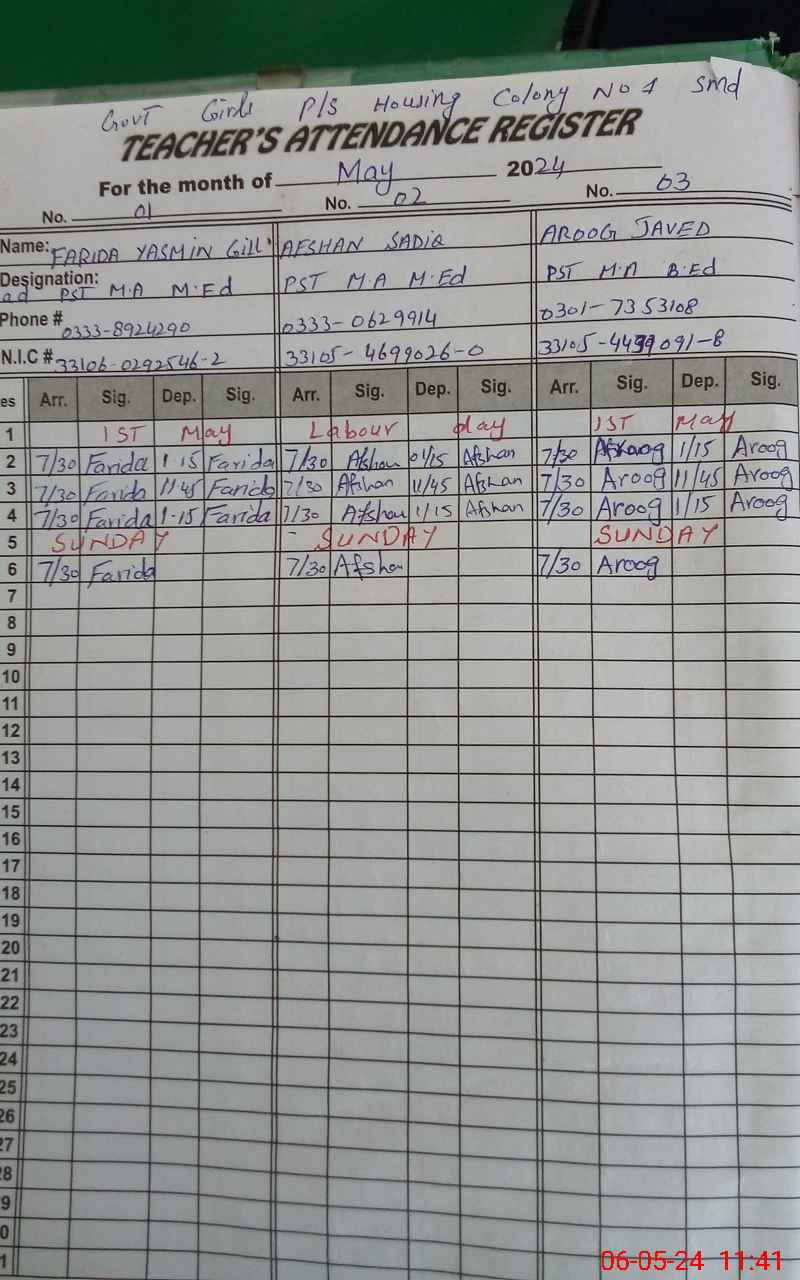 Govt Girls P/S Housing Colony No 1 Smd
TEACHER'S ATTENDANCE REGISTER
For the month of May 2024
No. 01 No. 02 No. 03
Name: FARIDA YASMIN Gill AFSHAN SADIQ AROOG JAVED
Designation: PST M.A M.Ed PST M.A M.Ed PST M.A B.Ed
Phone # 0333-8924290 0333-0629914 0301-7353108
N.I.C # 33106-0292546-2 33105-4699026-0 33105-4439091-8
es Arr. Sig. Dep. Sig. Arr. Sig. Dep. Sig. Arr. Sig. Dep. Sig.
1 1ST May Labour day 1ST May
2 7/30 Farida 1-15 Farida 7/30 Afshan 01/15 Afshan 7/30 1/15 Aroog
3 7/30 Farida 11/45 Farida 7/30 Afshan 11/45 Afshan 7/30 Aroog 11/45 Aroog
4 7/30 Farida 1-15 Farida 7/30 Afshan 1/15 Afshan 7/30 Aroog 1/15 Aroog
5 SUNDAY SUNDAY SUNDAY
6 7/30 Farida 7/30 Afshan 7/30 Aroog
7
8
9
10
11
12
13
14
15
16
17
18
19
20
21
22
23
24
25
26
27
28
9
0
1
06-05-24 11:41